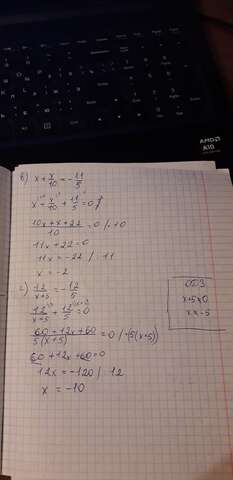 AMDA
A10
б) x + x/10 = -11/5
x + x/10 + 11/5 = 0
10x + x + 22 / 10 = 0 / ·10
11x + 22 = 0
11x = -22 / : 11
x = -2
c) 12/x+5 = -12/5
12/x+5 + 12/5 = 0
60 + 12x + 60 / 5(x+5) = 0 / ·5(x+5)
60 + 12x + 60 = 0
12x = -120 / : 12
x = -10
ОДЗ
x+5 ≠ 0
x ≠ -5